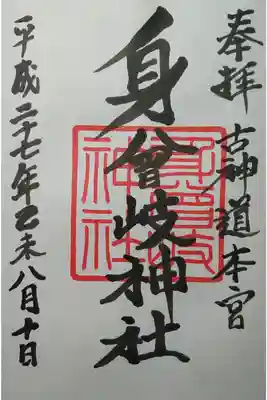 奉拝 古神道本宮
身曾岐神社
平成二十七年乙未八月十日